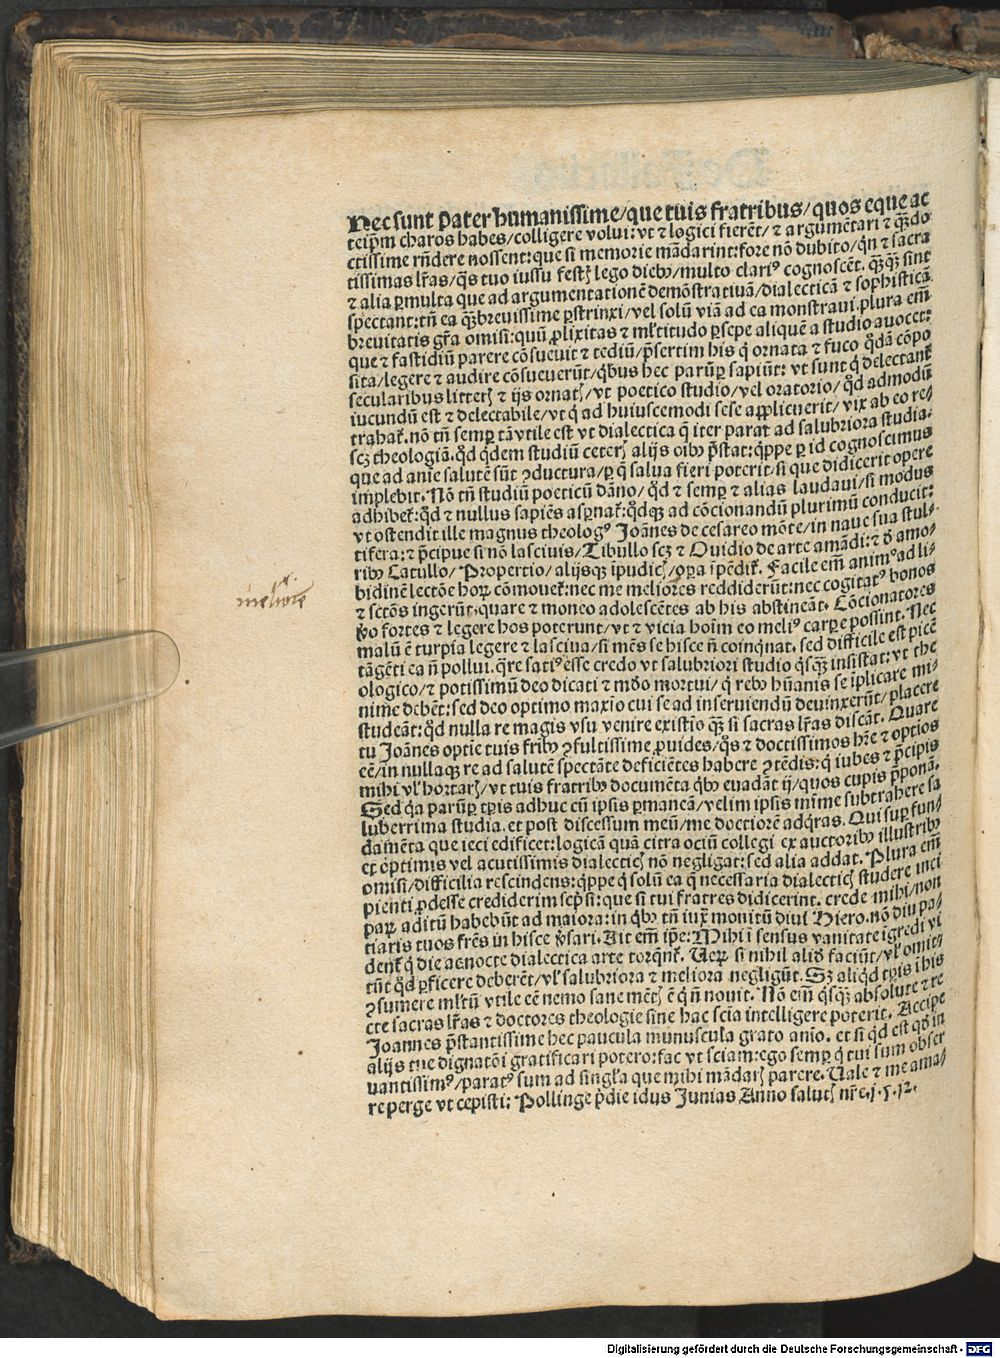 Hec sunt pater humanissime/que tuis fratribus/quos eque ac
teip̄m charos habes/colligere volui: vt ⁊ logici fierēt/⁊ argumētari ⁊ q̄ꝫdo
ctissime rñdere nossent: que si memorie mādarint: fore nō dubito/qn̄ ⁊ sacra
tissimas lr̄as/q̄s tuo iussu festꝭ lego diebꝰ/multo clariꝰ cognoscēt. q̄ꝫq̄ꝫ sint
⁊ alia ꝑmulta que ad argumentationē demōstratiuā/dialecticā ⁊ sophisticā
spectant: tn̄ ea q̄ꝫbreuissime ꝑstrinxi/vel solū viā ad ea monstraui. plura em̄
breuitatis gr̄a omisi: quū ꝓlixitas ⁊ ml̄titudo ꝑsepe aliquē a studio auocet:
que ⁊ fastidiū parere cōsueuit ⁊ tediū/p̄sertim his q̇ ornata ⁊ fuco q̇dā cōpo
sita/legere ⁊ audire cōsueuerūt/q̇bus hec parūꝑ sapiūt: vt sunt q̇ delectant̄
secularibus litterꝭ ⁊ ijs ornatꝭ/vt poetico studio/vel oratorio/q̇d admodū
iucundū est ⁊ delectabile/vt q̇ ad huiuscemodi sese applicuerit/vix ab eo re/
trahat̄. nō tn̄ semꝑ tā vtile est vt dialectica q̄ iter parat ad salubriora studia.
scꝫ theologiā. q̇d q̇dem studiū ceterꝭ alijs oibꝰ p̄stat: q̇ppe ꝑ id cognoscimus
que ad anie salutē sūt ꝯductura/ꝑ q̄ salua fieri poterit/si que didicerit opere
implebit. Nō tn̄ studiū poeticū dāno/q̇d ⁊ semꝑ ⁊ alias laudaui/si modus
adhibet̄: q̇d ⁊ nullus sapiēs aspnat̄: q̇dqꝫ ad cōcionandū plurimū conducit:
vt ostendit ille magnus theologꝰ Joānes de cesareo mōte/in naue sua stul/
tifera: ⁊ p̄cipue si nō lasciuis/Tibullo scꝫ ⁊ Ouidio de arte amādi: ⁊ d̄ amo/
ribꝰ Catullo/Propertio/alijsqꝫ īpudicꝭ/oꝑa īpēdit̄. Facile em̄ animꝰ ad li/
bidinē lectōe horꝝ cōmouet̄: nec me meliores reddiderūt: nec cogitatꝰ bonos
⁊ sctōs ingerūt. quare ⁊ moneo adolescētes ab his abstineāt. Cōcionatores
v̄o fortes ⁊ legere hos poterunt/vt ⁊ vicia hoīm eo meliꝰ carpere possint. Nec
malū ē turpia legere ⁊ lasciua/si mēs se hisce n̄ coinq̇nat. sed difficile est picē
tāgēti ea n̄ pollui. q̄re satiꝰ esse credo vt salubriori studio q̇sqꝫ insistat: vt the
ologico/⁊ potissimū deo dicati ⁊ mūdo mortui/q̇ rebꝰ hūanis se īplicare mi/
nime debēt: sed deo optimo maxīo cui se ad inseruiendū deuinxerūt/placere
studeāt: q̇d nulla re magis vsu venire existīo q̄ꝫ si sacras lr̄as discāt. Quare
tu Joānes optīe tuis fribꝰ ꝯsultissime ꝓuides/q̇s ⁊ doctissimos hr̄e ⁊ optīos
eē/in nullaqꝫ re ad salutē spectāte deficiētes habere ꝯtēdis: q̇ iubes ⁊ p̄cipis
mihi vl̄ hortarꝭ/vt tuis fratribꝰ documēta q̇bꝰ euadāt ij/quos cupis p̄ponā.
Sed q̇a parūꝑ tp̄is adhuc cū ipsis ꝑmaneā/velim ipsis mīme subtrahere sa
luberrima studia. et post discessum meū/me doctiorē adq̇ras. Qui suꝑ fun/
damēta que ieci edificet: logicā quā citra ociū collegi ex auctoribꝰ illustribꝰ
et optimis vel acutissimis dialecticꝭ nō negligat: sed alia addat. Plura em̄
omisi/difficilia rescindens: q̇ppe q̇ solū ea q̄ necessaria dialecticꝭ studere inci
pienti ꝓdesse crediderim scp̄si: que si tui fratres didicerint. crede mihi/non
parū aditū habebūt ad maiora: in q̇bꝰ tn̄ iux̄ monitū diui Hiero. nō diu pa/
tiaris tuos fr̄es in hisce v̄sari. Ait em̄ ip̄e: Mihi ī sensus vanitate igredi vi
dent̄ q̇ die ac nocte dialectica arte torqūt̄. Ueꝝ si nihil aliud faciūt/vl̄ omit/
tūt q̇d ꝑficere deberēt/vl̄ salubriora ⁊ meliora negligūt. Sꝫ aliq̇d tp̄is ī his
ꝯsumere ml̄tū vtile eē nemo sane mētꝭ ē q̇ n̄ nouit. Nō em̄ q̇sq̄ꝫ absolute ⁊ re
cte sacras lr̄as ⁊ doctores theologie sine hac scīa intelligere poterit. Accipe
Joannes p̄stantissime hec paucula munuscula grato anīo. et si q̇d est q̇d in
alijs tue dignatōi gratificari potero: fac vt sciam: ego semꝑ q̇ tui sum obser
uantissimꝰ/paratꝰ sum ad singl̄a que mihi mādarꝭ parere. Uale ⁊ me ama/
re perge vt cepisti: Pollinge p̄die idus Junias Anno salutꝭ nr̄e. 1. 5. 12.
meliorē
Digitalisierung gefördert durch die Deutsche Forschungsgemeinschaft - DFG